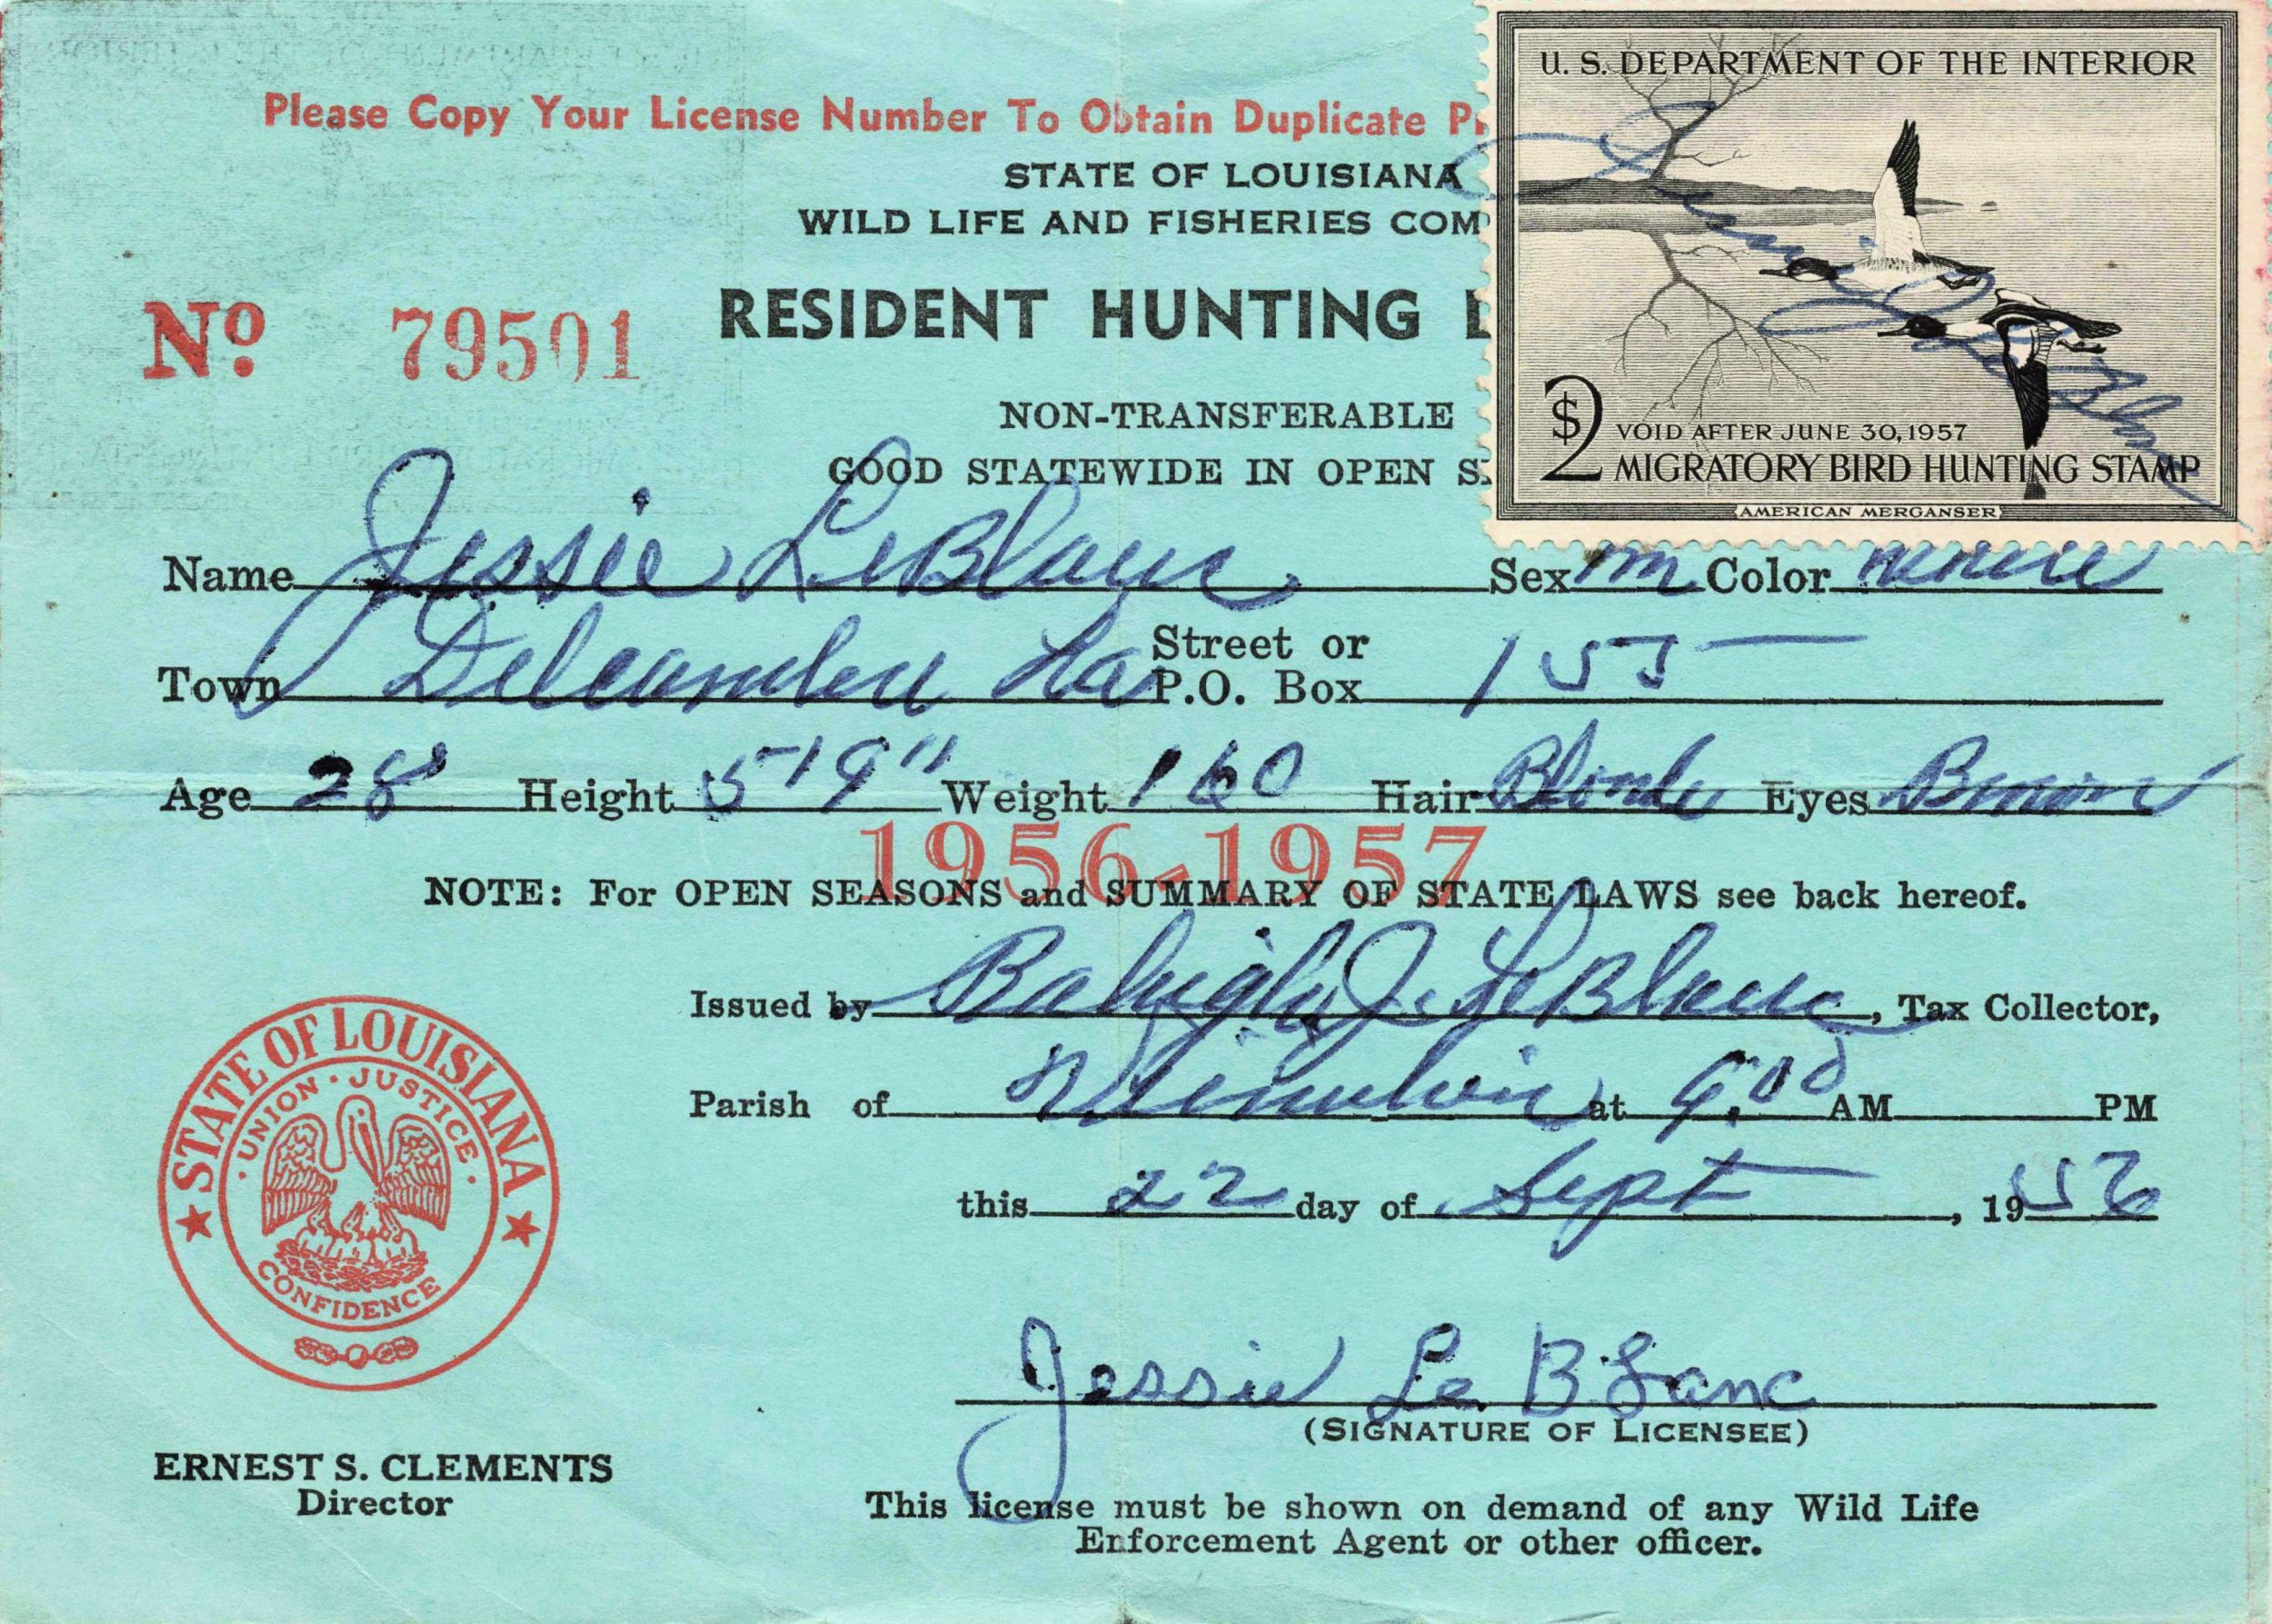 Please Copy Your License Number To Obtain Duplicate
STATE OF LOUISIANA
WILD LIFE AND FISHERIES COM
Nº 79501
RESIDENT HUNTING
NON-TRANSFERABLE
GOOD STATEWIDE IN OPEN S
U. S. DEPARTMENT OF THE INTERIOR
$2
VOID AFTER JUNE 30, 1957
MIGRATORY BIRD HUNTING STAMP
AMERICAN MERGANSER
Name Jessie LeBlanc Sex m Color White
Town Delcambre La Street or P.O. Box 155
Age 28 Height 5'9" Weight 160 Hair Blonde Eyes Brown
1956-1957
NOTE: For OPEN SEASONS and SUMMARY OF STATE LAWS see back hereof.
Issued by Raleigh J. LeBlanc, Tax Collector,
Parish of Vermilion at 9:00 AM PM
this 22 day of Sept, 1956
STATE OF LOUISIANA
UNION JUSTICE
CONFIDENCE
Jessie Le Blanc
(SIGNATURE OF LICENSEE)
ERNEST S. CLEMENTS
Director
This license must be shown on demand of any Wild Life
Enforcement Agent or other officer.